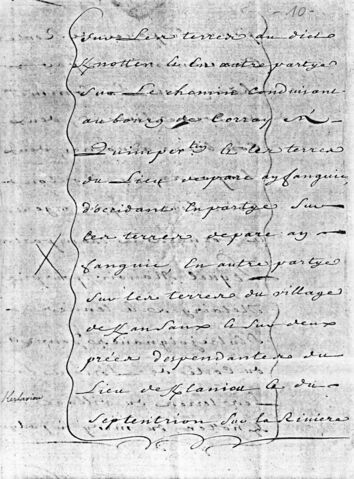 - 10 -
Sur Les terres du dict
Knotter & En autre partye
Sur Le chemin Conduisant
au bourg de Corray et
Quimper & les terres
du Lieu depare ay fanguie,
d'occidant En partye Sur
Les terres depare ay
fanguie, En autre partye
Sur les terres du village
de Kansaux & Sur deux
prées despendantes du
Lieu de Klaniou & du
Septentrion Sur la Riviere
Kerlaviou